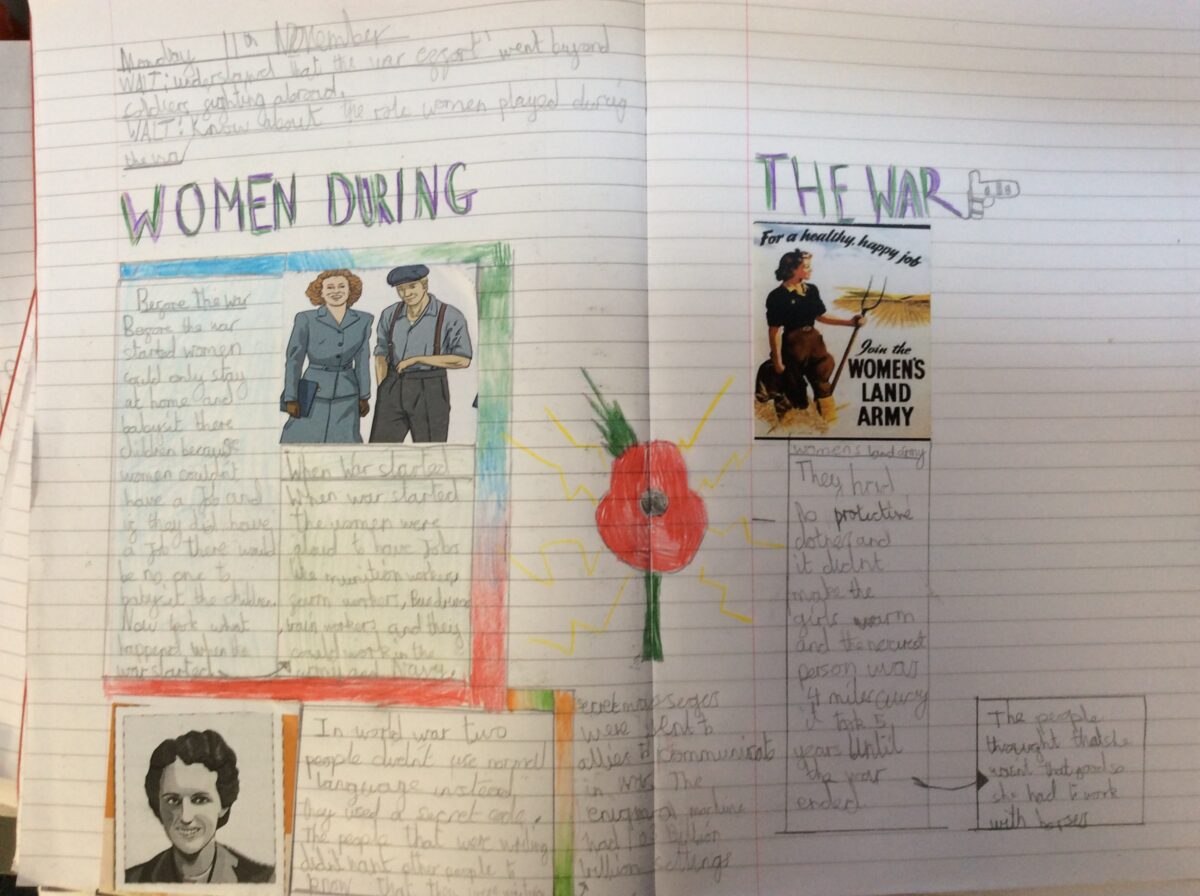 Monday 11th November
WALT: understand that the 'war effort' went beyond
soldiers fighting abroad.
WALT: Know about the role women played during
the war
WOMEN DURING
THE WAR
Before the war
Before the war
started women
could only stay
at home and
babysit there
children because
women couldn't
have a job and
if they did have
a job there would
be no one to
babysit the children.
Now look what
happened when the
war started
When War started
When war started
the women were
alowd to have Jobs
like munition workers
farm workers, Bus drivers
train workers and they
could work in the
army and Navy.
For a healthy, happy job
Join the
WOMEN'S
LAND
ARMY
women's land army
They had
No protective
clothes and
it didn't
make the
girls warm
and the nearest
person was
4 miles away
it took 5
years until
the war
ended
The people
throught that she
wasn't that good so
she had to work
with horses
In world war two
people didn't use normal
language instead
they used a secret code.
The people that were writing
didn't want other people to
know that they were
secret messages
were sent to
allies to communicate
in war. The
enigma machine
had Billion
billion settings